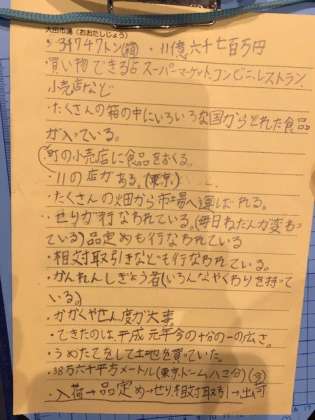 大田市場(おおたしじょう)
・394747トン(箱)・11億六十七百万円
・買い物できる店スーパーマーケット、コンビニ、レストラン、
小売店など
・たくさんの箱の中にいろいろな国からとれた食品
が入っている。
・町の小売店に食品をおくる。
・11の店がある。(東京)
・たくさんの畑から市場へ運ばれる。
・せりが行なわれている。(毎日ねだんが変わっ
ている)品定めも行なわれている
・相対取引きなども行なわれている。
・かんれんじぎょう者(いろんなやくわりを持って
いる)
・かかくやせん度が大事。
・できたのは、平成元年今の十分の一の広さ。
・うめたてをして土地を買っていた。
・38万六十平方メートル(東京ドーム八コ分)
・入荷→品定め→せり、相対取引→出荷